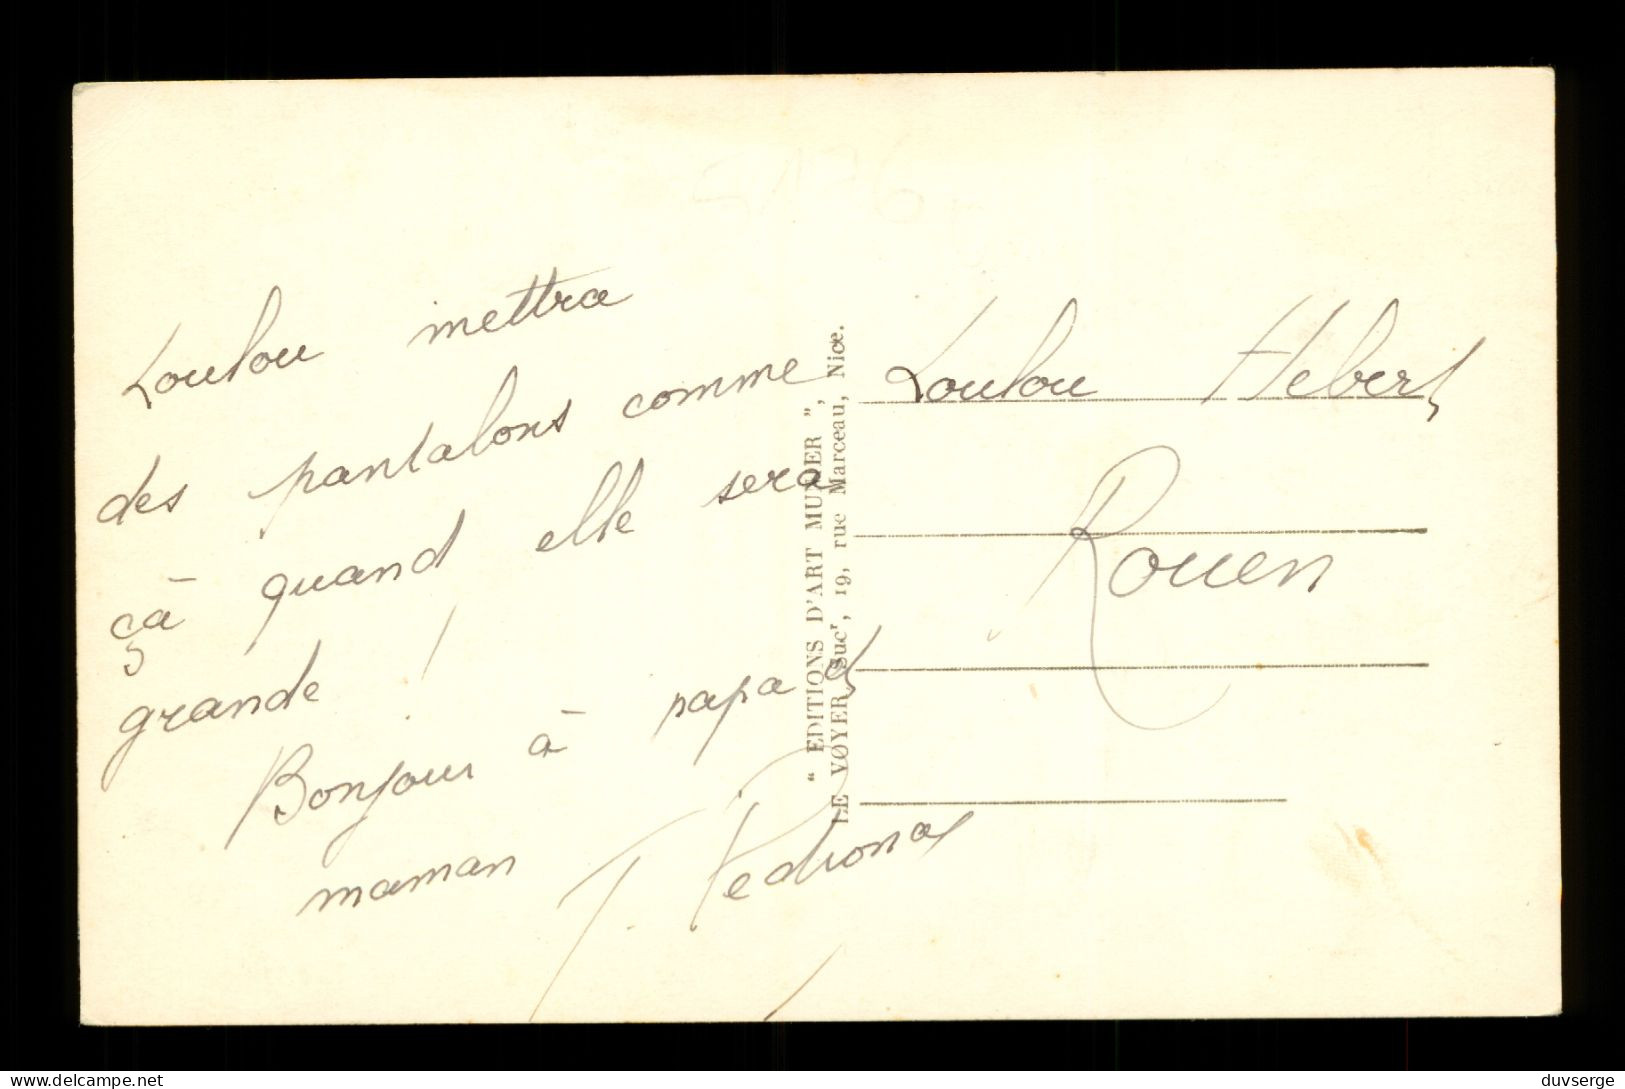 Loulou mettra
des pantalons comme
çà quand elle sera
grande !
Bonjour à papa et
maman
“ EDITIONS D'ART MUNIER ”,
LE VOYER Sucr, 19, rue Marceau, Nice.
Loulou Hebert
Rouen
delcampe.net
duvserge